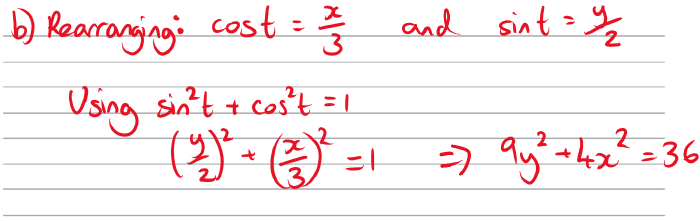 b) Rearranging: cost = x/3 and sint = y/2
Using sin²t + cos²t = 1
(y/2)² + (x/3)² = 1 ⇒ 9y² + 4x² = 36